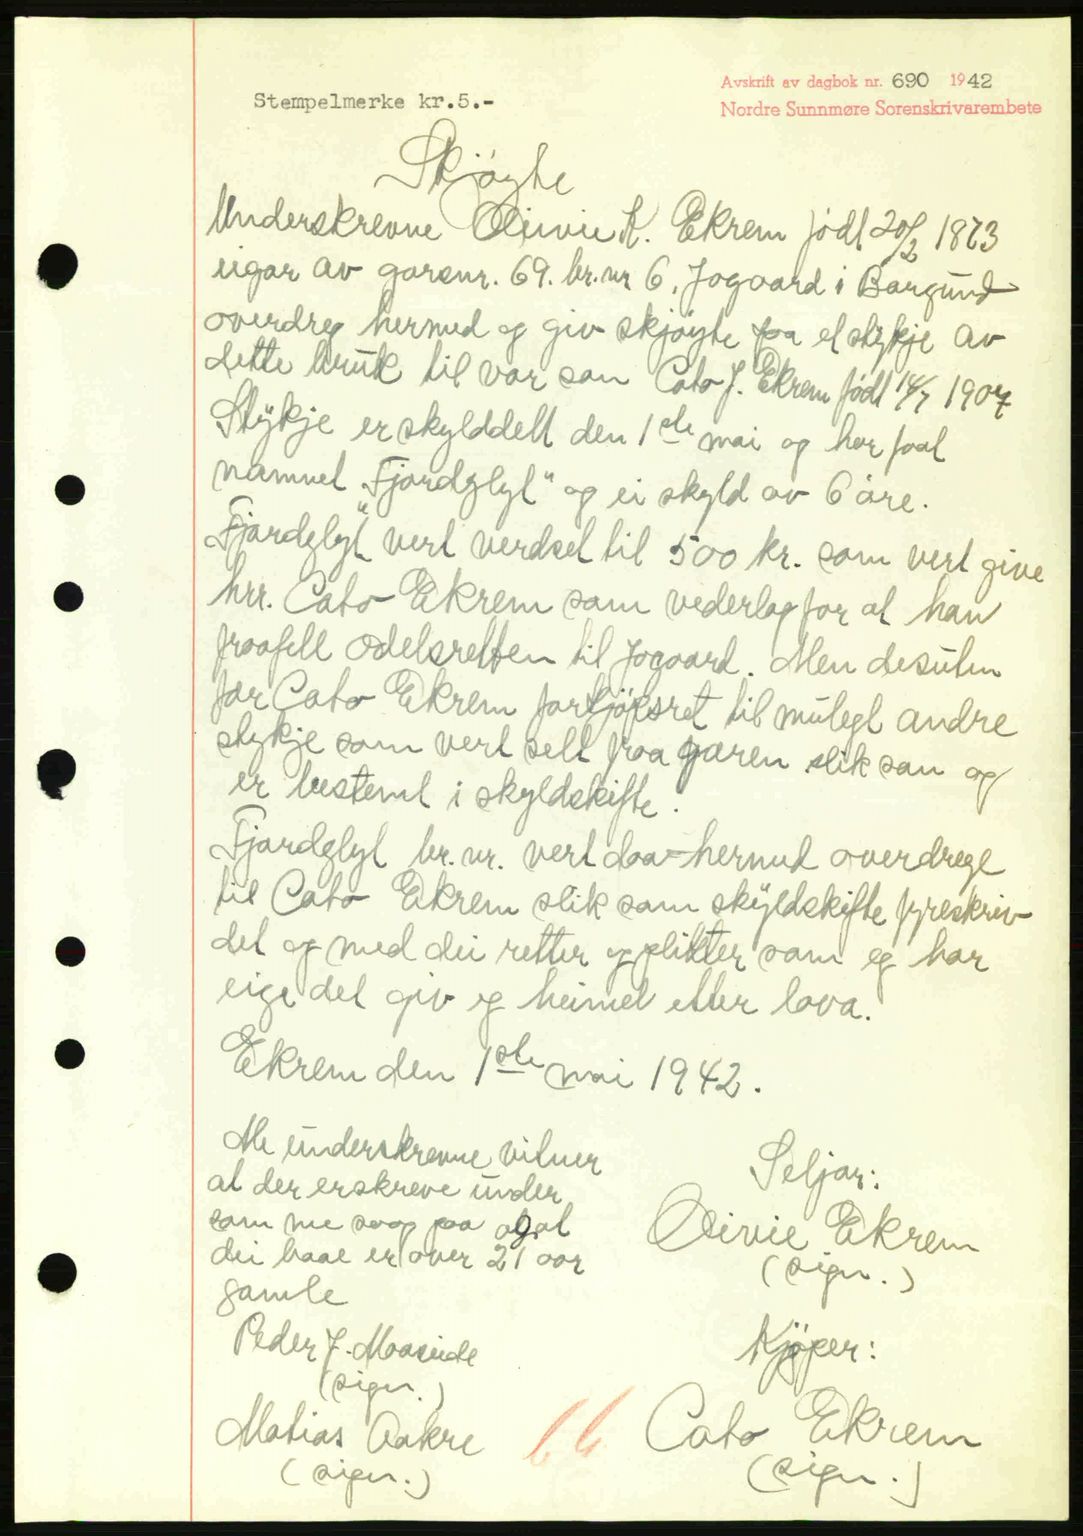 Avskrift av dagbok nr. 690 1942
Stempelmerke kr.5.-
Nordre Sunnmøre Sorenskrivarembete
Skjøyte
Underskrevne Olivie K. Ekrem født 20/2 1873
eigar av garsnr. 69. br. nr 6. Jogaard i Borgund
overdreg hermed og giv skjøyte paa et stykje av
dette bruk til vor son Cato J. Ekrem født 14/7 1907
Stykje er skylddelt den 1ste mai og har faat
namnet "Fjordglyt" og ei skyld av 6 øre.
"Fjordglyt" vert verdset til 500 kr. som vert give
hrr. Cato Ekrem som vederlag for at han
fraafell odelsretten til Jogaard. Men desuten
far Cato Ekrem forkjøpsret til mulegt andre
stykje som vert selt fraa garen slik som og
er bestemt i skyldskifte.
Fjordglyt br. nr. vert daa hermed overdrege
til Cato Ekrem slik som skyldskifte fyreskriv
det og med dei retter og plikter som eg har
eige det giv eg heimel etter lova.
Ekrem den 1ste mai 1942.
Me underskrevne vitner
at der er skreve under
som me saag paa og at
dei baae er over 21 aar
gamle
Peder J. Moaseide
(sign.)
Matias Aakre
(sign.)
Seljar:
Olivie Ekrem
(sign.)
Kjøper:
Cato Ekrem
(sign.)